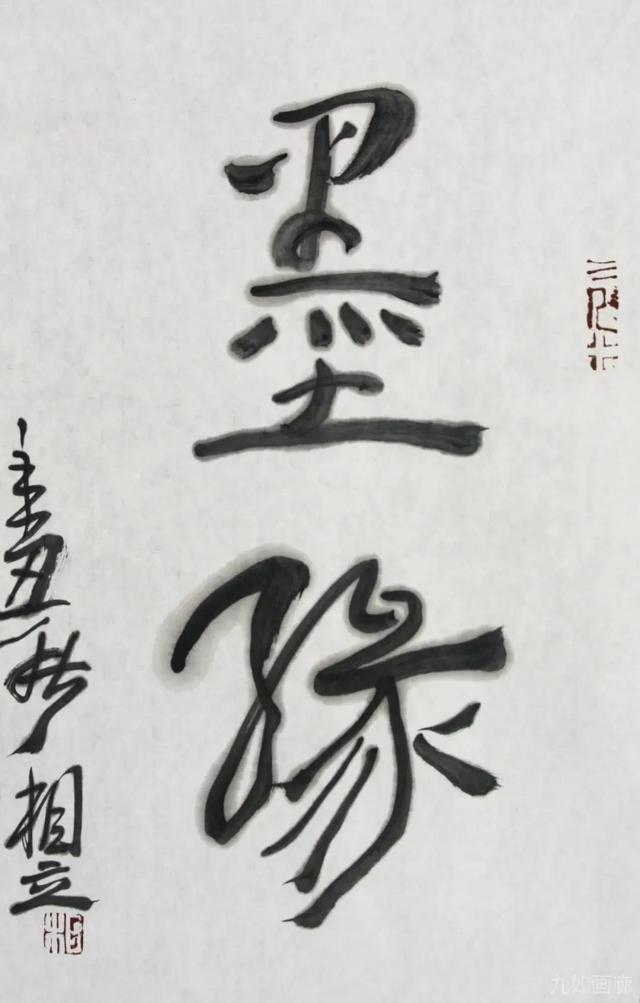 墨缘
辛丑秋相立
九如画廊